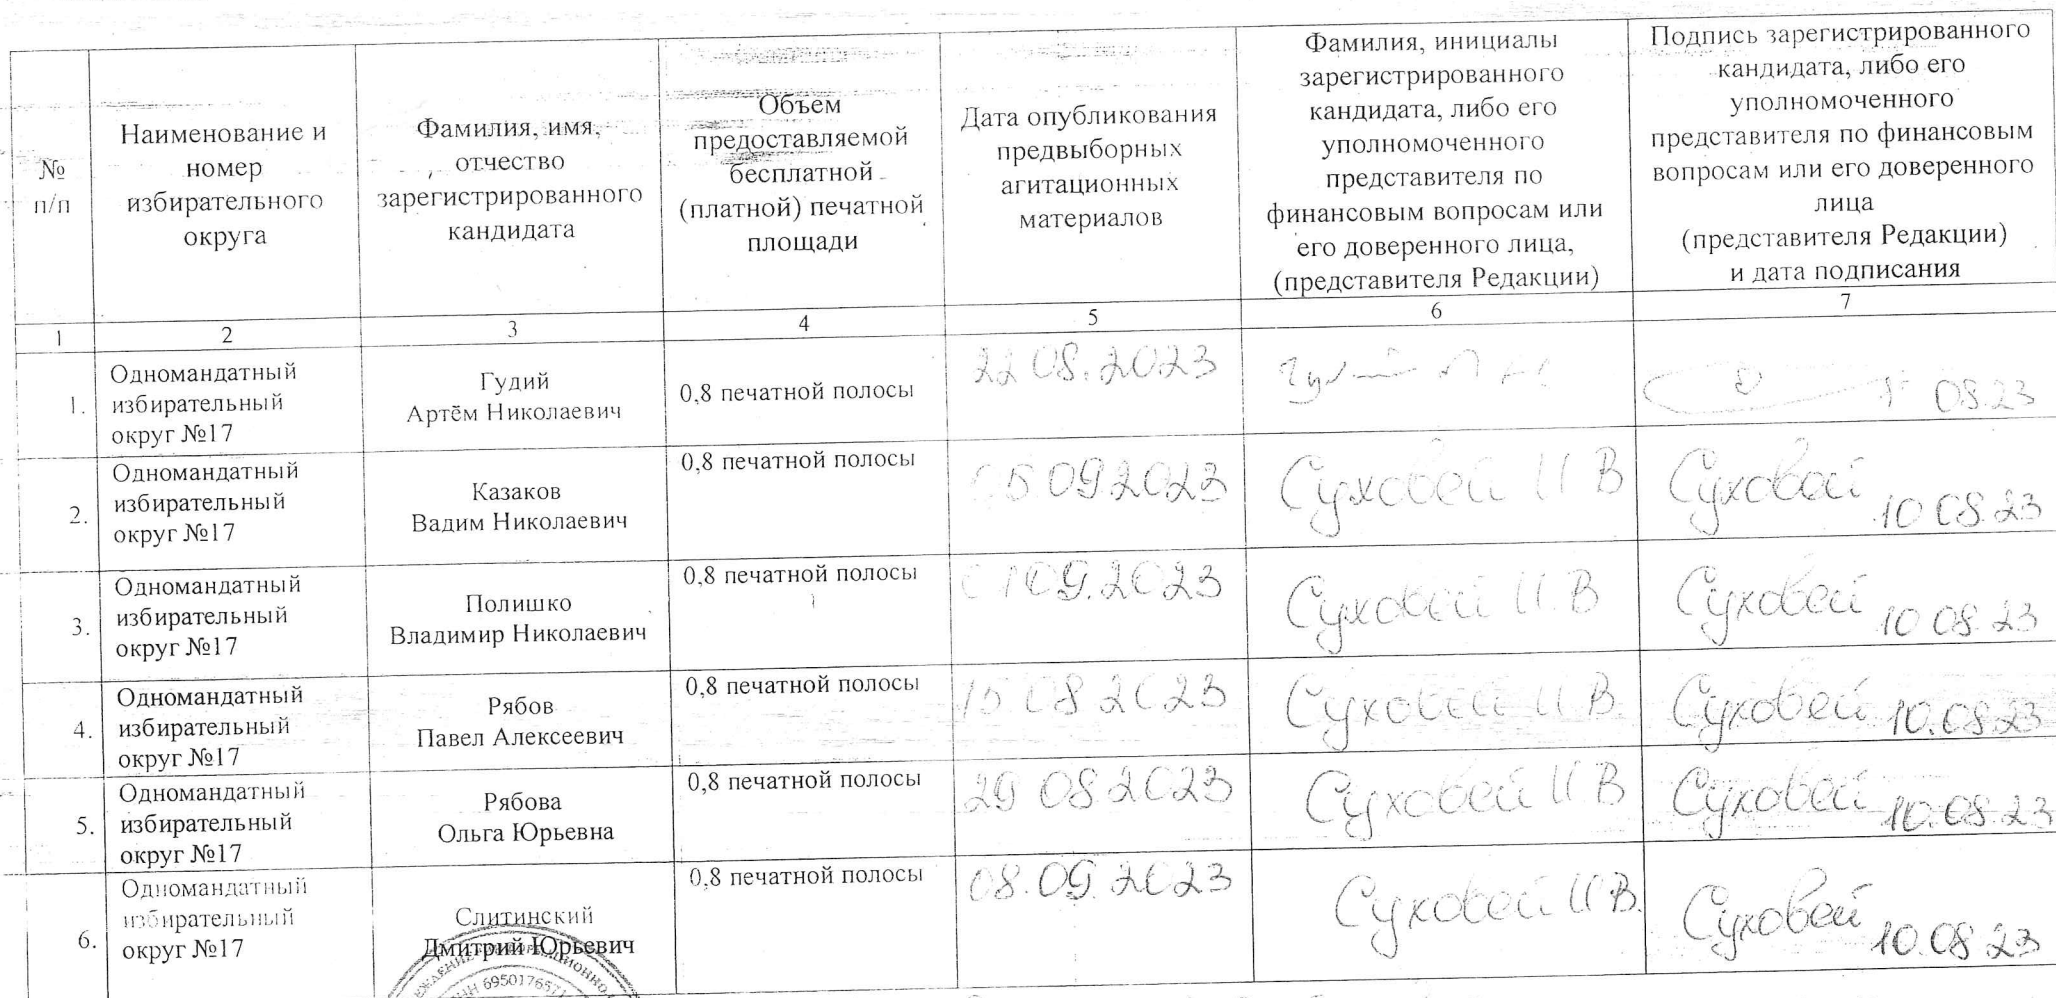 №
п/п
Наименование и
номер
избирательного
округа
Фамилия, имя,
отчество
зарегистрированного
кандидата
Объем
предоставляемой
бесплатной
(платной) печатной
площади
Дата опубликования
предвыборных
агитационных
материалов
Фамилия, инициалы
зарегистрированного
кандидата, либо его
уполномоченного
представителя по
финансовым вопросам или
его доверенного лица,
(представителя Редакции)
Подпись зарегистрированного
кандидата, либо его
уполномоченного
представителя по финансовым
вопросам или его доверенного
лица
(представителя Редакции)
и дата подписания
1
2
3
4
5
6
7
1.
Одномандатный
избирательный
округ №17
Гудий
Артём Николаевич
0,8 печатной полосы
22 08.2023
08.23
2.
Одномандатный
избирательный
округ №17
Казаков
Вадим Николаевич
0,8 печатной полосы
05.09 2023
Суховей И В
Суховей
10 08.23
3.
Одномандатный
избирательный
округ №17
Полишко
Владимир Николаевич
0,8 печатной полосы
01 09.2023
Суховей И.В
Суховей
10 08 23
4.
Одномандатный
избирательный
округ №17
Рябов
Павел Алексеевич
0,8 печатной полосы
15 08 2023
Суховей И В.
Суховей
10.08.23
5.
Одномандатный
избирательный
округ №17
Рябова
Ольга Юрьевна
0,8 печатной полосы
29 08 2023
Суховей И В
Суховей
10.08 23
6.
Одномандатный
избирательный
округ №17
Слитинский
Дмитрий Юрьевич
0,8 печатной полосы
08.09.2023
Суховей И В.
Суховей
10.08 23